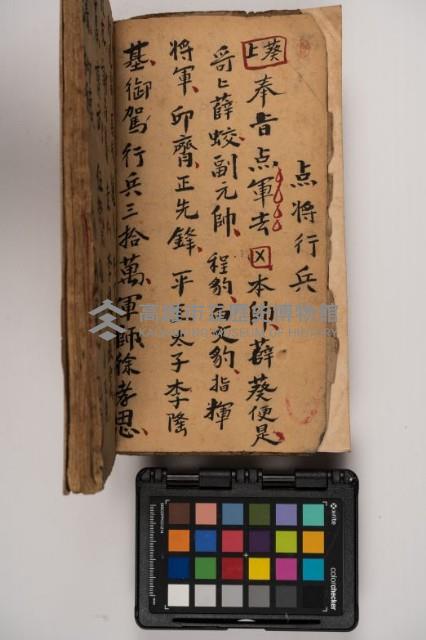 点将行兵
葵上 奉旨点軍去 又 本帥薛葵便是
哥上薛蛟副元帥 程豹 文豹指揮
将軍 邱齊正先鋒 平 太子李隆
基御駕行兵三拾萬軍師徐孝思
高雄市立歷史博物館
KAOHSIUNG MUSEUM OF HISTORY
x-rite
colorchecker